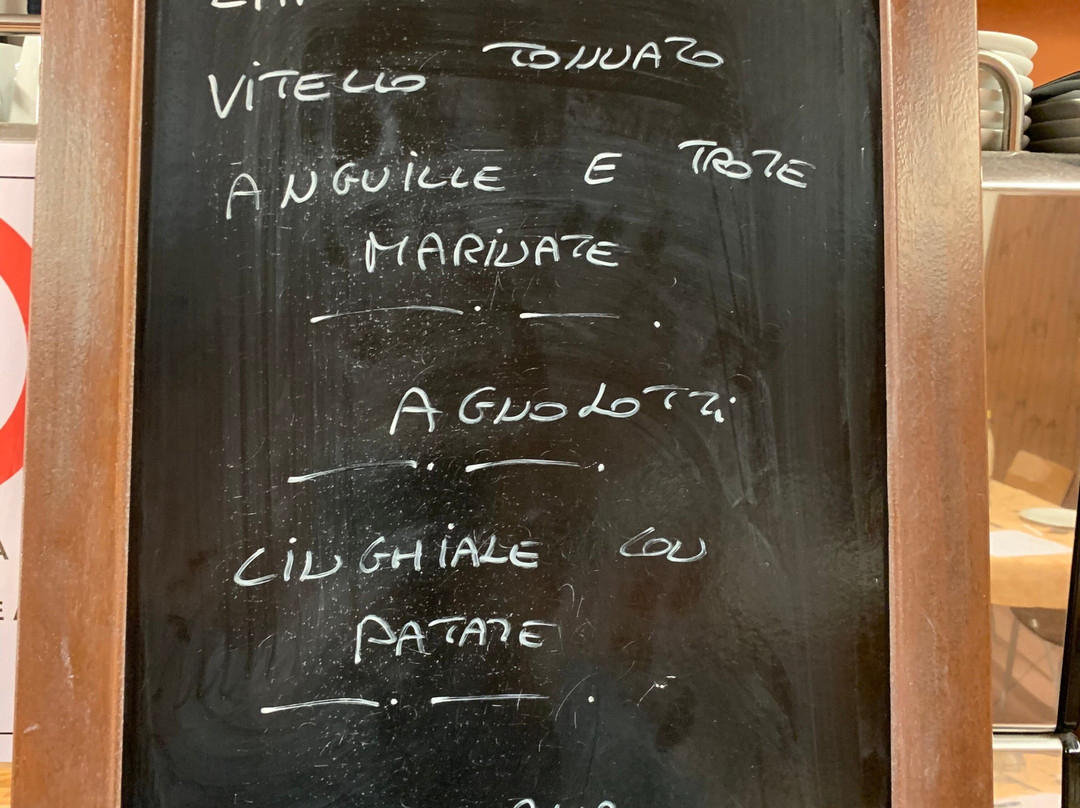 VITELLO TONNATO
ANGUILLE E TROTE
MARINATE
AGNOLOTTI
CINGHIALE CON
PATATE